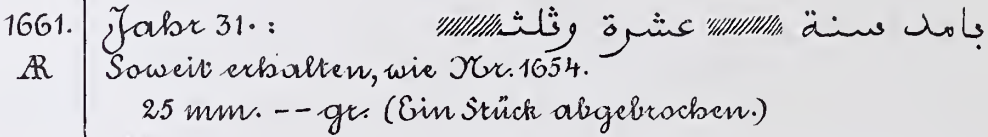 1661. Jahr 31·: بامد سنة عشرة وثلث
AR Soweit erhalten, wie Nr. 1654.
25 mm. -- gr. (Ein Stück abgebrochen.)